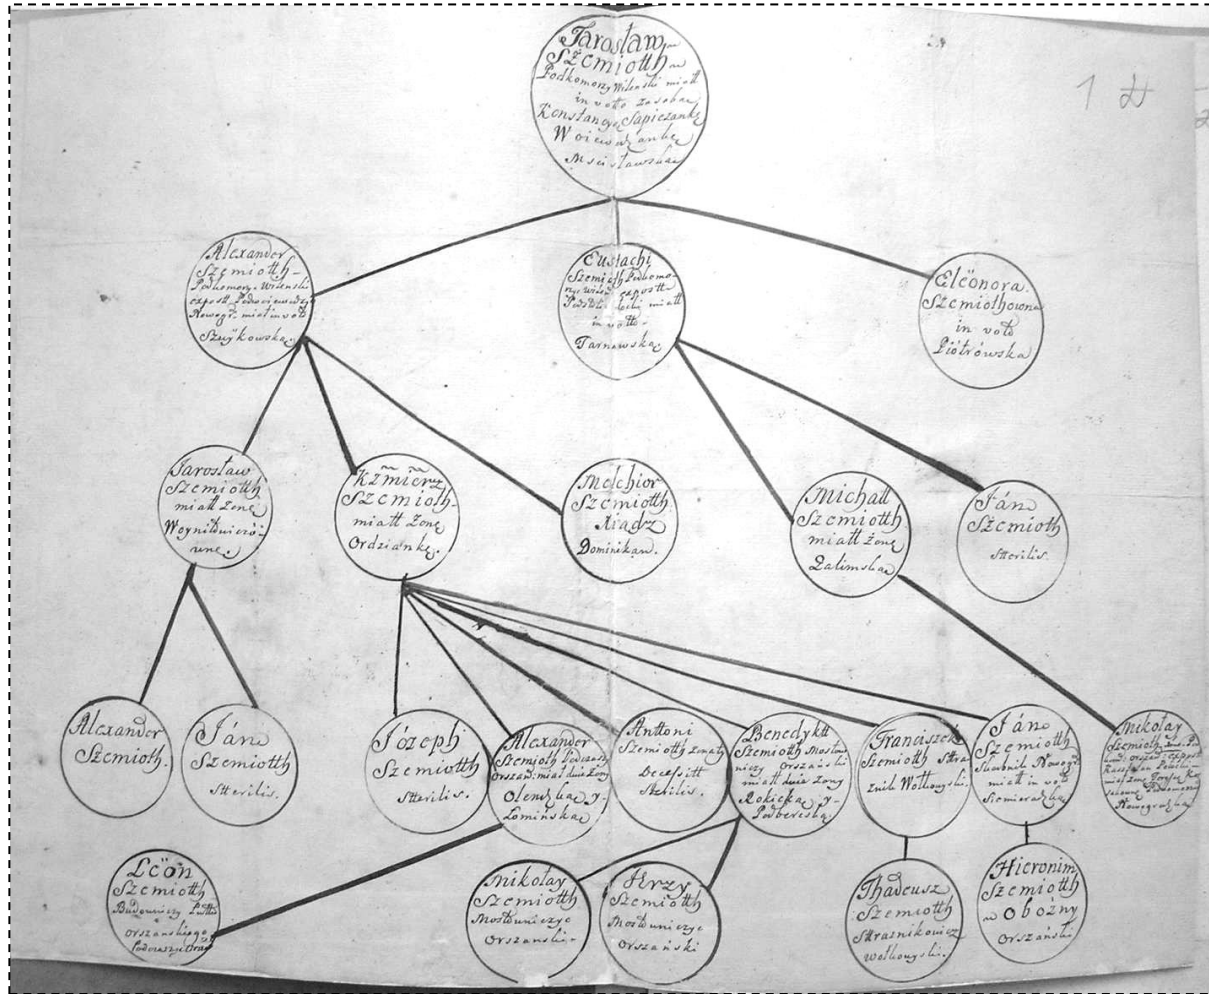 Jarosław
Szemiotth
Podkomorzy Wilenski miall
in votto za sobą
Konstancyę Sapieżankę
Woiewodzankę
Mscisławską
1
Alexander
Szemiotth
Podkomorzy Wilenski
expost
Nowogr. miał in voto
Szuykowską.
Eustachi
Szemioth Podkomo-
expost
miall
in votto
Tarnawską.
Eleönora
Szemiothowna
in voto
Piotrowska
Jarosław
Szemiotth
miall Zonę
Woyniłowiczo-
wnę.
Kżmierz
Szemioth
miall Zonę
Ordziankę.
Melchior
Szemiotth
Xiądz
Dominikan.
Michall
Szemiotth
miall żonę
Zalimską
Ján
Szemioth
Stterilis.
Alexander
Szemioth.
Ján
Szemiotth
Stterilis.
Józeph
Szemiotth
Stterilis.
Alexander
Szemioth
Orszań. miał dwie Zony
Olendzką y
Łomińską
Anttoni
Szemiotth
Decessitt
Stterilis.
Benedyktt
Szemiotth Mostow
niczy Orszański
miall dwie żony
Rokicką y
Podbereską.
Franciszek
Szemiotth Stra
znik Wołkowyski.
Ján
Szemiotth
Skarbnik Nowogr
miall in voto
Siemieradzką
Mikołay
Szemioth
Nowogrodzką
Leön
Szemiotth
Budowniczy
Orszańskiego
Mikołay
Szemiotth
Mostowniczyc
Orszański
Jerzy
Szemiotth
Mostowniczyc
Orszański
Thadeusz
Szemiotth
Strażnikowicz
Wołkowyski.
Hieronim
Szemiotth
Obożny
Orszański